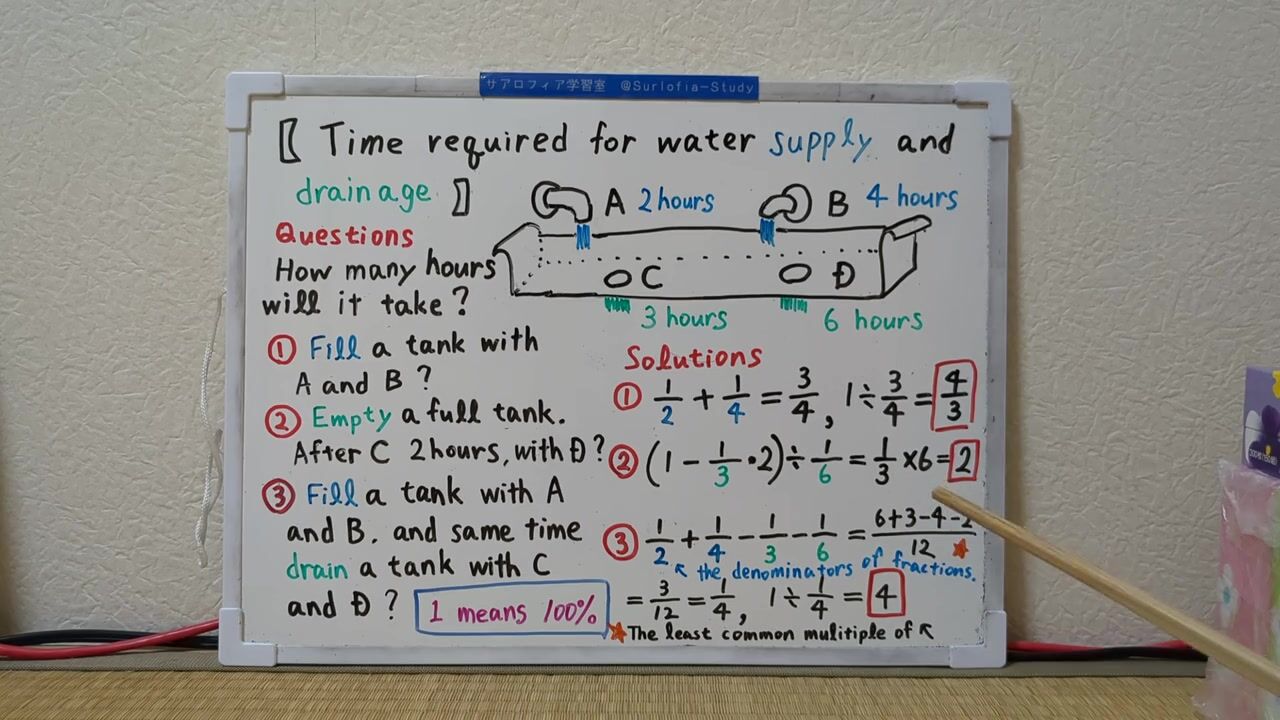 サアロフィア学習室 @Surlofia-Study
【 Time required for water supply and
drainage 】
A 2 hours
B 4 hours
C
D
3 hours
6 hours
Questions
How many hours
will it take?
① Fill a tank with
A and B ?
② Empty a full tank.
After C 2 hours, with D ?
③ Fill a tank with A
and B, and same time
drain a tank with C
and D ?
1 means 100%
Solutions
① 1/2 + 1/4 = 3/4 , 1 ÷ 3/4 = 4/3
② (1 - 1/3 · 2) ÷ 1/6 = 1/3 × 6 = 2
③ 1/2 + 1/4 - 1/3 - 1/6 = 6+3-4-2/12 ★
↖ the denominators of fractions.
= 3/12 = 1/4 , 1 ÷ 1/4 = 4
★ The least common mulitiple of ↖